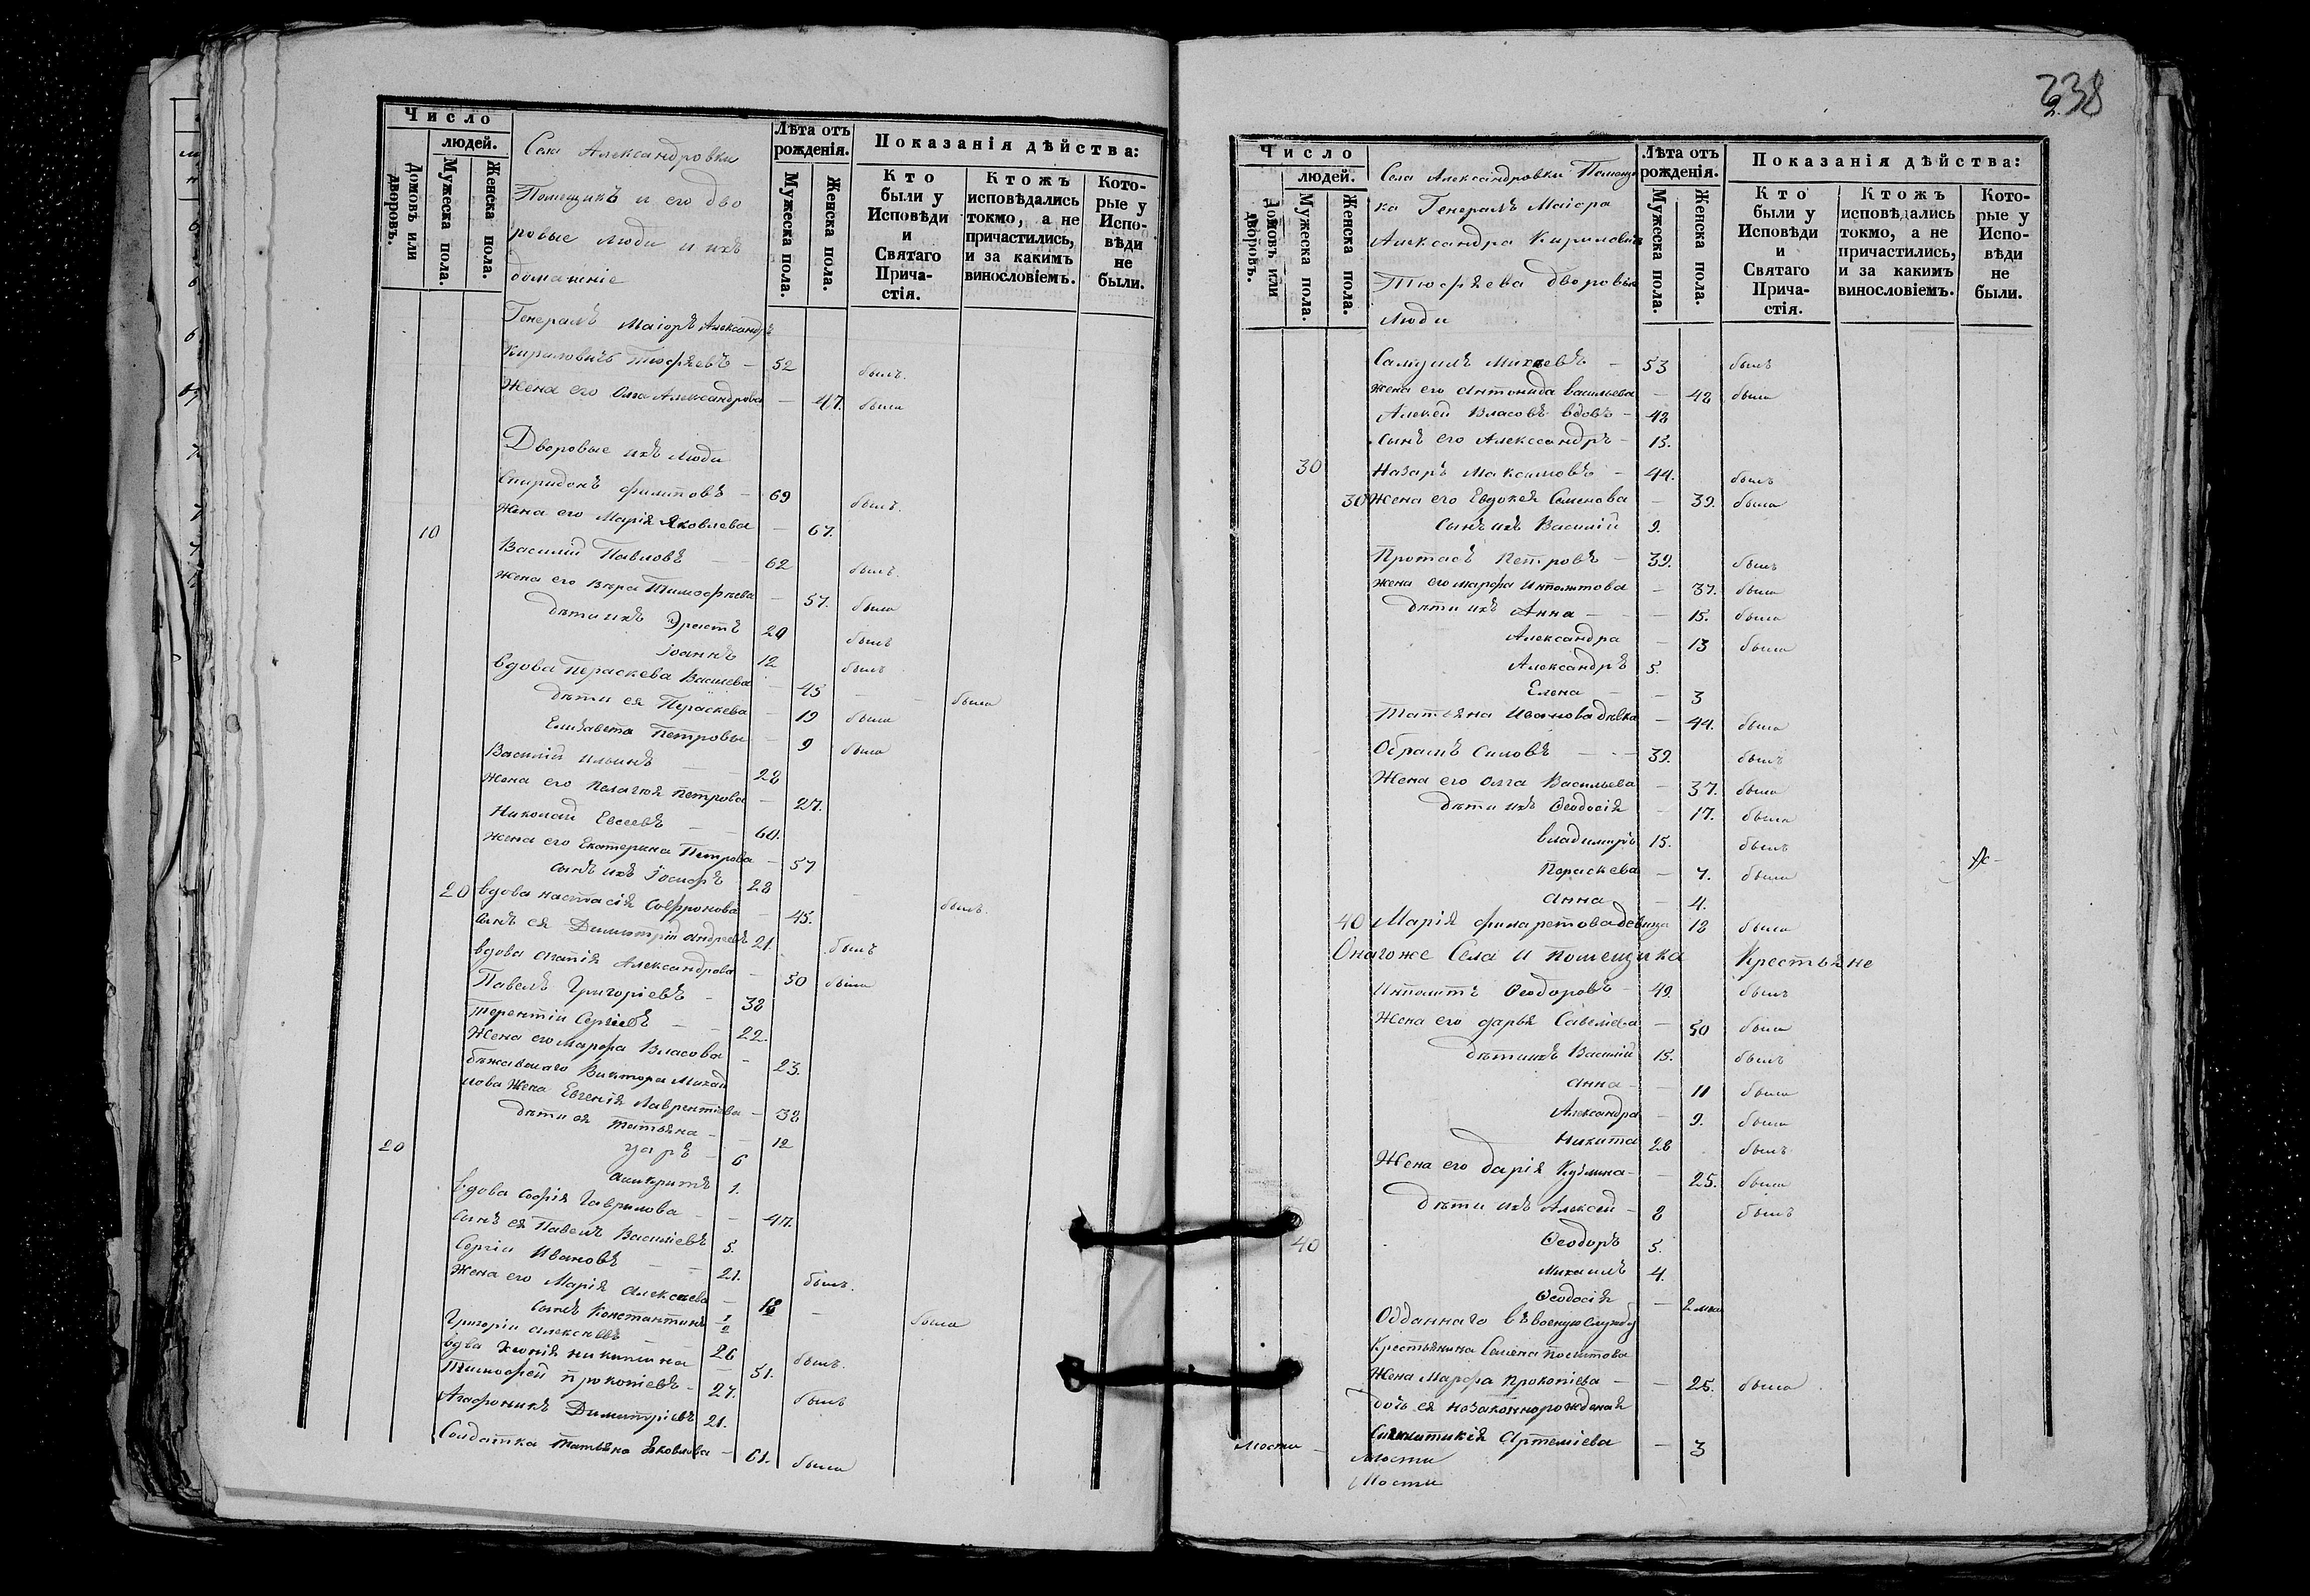 Число
людей.
Домовъ или дворовъ.
Мужеска пола.
Женска пола.
Села Александровки
Помещикъ и его дво
ровые люди и ихъ
домашніе
Лѣта отъ рожденія.
Мужеска пола.
Женска пола.
Показанія дѣйства:
Кто были у Исповѣди и Святаго Причастія.
Ктожъ исповѣдались токмо, а не причастились, и за какимъ винословіемъ.
Которые у Исповѣди не были.
Генералъ Маіоръ Александръ
Кириловичъ Тюфяевъ — 52 былъ.
Жена его Олга Александрова — 47. была
Дворовые ихъ люди
Спиридонъ Филиповъ — 69 былъ.
Жена его Марія Яковлева — 67.
10 Василій Павловъ — 62 былъ.
Жена его Вѣра Тимофѣева — 57. была
дѣти ихъ Эрастъ 20 былъ
Іоаннъ 12 былъ
вдова Пераскева Васильева — 45 — — была
дѣти ея Пераскева — 19 была
Елизавета Петровы — 9 была
Василій Ильинъ — 28
Жена его Пелагея Петрова — 27.
Николай Евсеевъ — 60.
Жена его Екатерина Петрова — 57
сынъ ихъ Іосифъ 28
20 вдова Настасія Софронова — 45. былъ.
сынъ ея Димитрій Андреевъ 21. былъ
вдова Агапія Александрова — 50 была
Павелъ Григоріевъ — 38
Терентій Сергіевъ — 22.
Жена его Марфа Власова — 23.
бѣжавшаго Виктора Михай
лова Жена Евгенія Лаврентіева — 38
дѣти ея Татьяна — — 12
20 Уаръ — 6
Аникритъ 1.
вдова Софія Гаврилова — — 47.
сынъ ея Павелъ Василіевъ 5.
Сергіи Ивановъ — — 21. былъ.
Жена его Марія Алексѣева — 18 — была
сынъ Константинъ 1/2
Григоріи Алексѣевъ — 26 былъ.
вдва Хіонія Никитина 51.
Тимофей Прокопіевъ — 27. былъ
Агафоникъ Димитріевъ 21.
Солдатка Татьяна Яковлева — 61. была
338
2.
Число
людей.
Домовъ или дворовъ.
Мужеска пола.
Женска пола.
Села Александровки Помещи
ка Генералъ Маіора
Александра Кириловича
Тюфяева дворовые
Люди
Лѣта отъ рожденія.
Мужеска пола.
Женска пола.
Показанія дѣйства:
Кто были у Исповѣди и Святаго Причастія.
Ктожъ исповѣдались токмо, а не причастились, и за какимъ винословіемъ.
Которые у Исповѣди не были.
Самуилъ Михѣевъ — 53 былъ
Жена его Антонида Васильева — 48 была
Алексѣй Власовъ вдовъ — 48
сынъ его Александръ — 15.
30 Назаръ Максимовъ — 44. былъ
30 Жена его Евдокея Семенова — 39. была
сынъ ихъ Василій 9.
Протасъ Петровъ — 39. былъ
Жена его Марфа Ипполитова — 37. была
дѣти ихъ Анна — — 15. была
Александра — 13 была
Александръ 5.
Елена — — 3
Татьяна Иванова дѣвка — 44. была
Обрамъ Силовъ — — 39. былъ
Жена его Олга Васильева — 37. была
дѣти ихъ Ѳеодосія — 17. была
Владимиръ 15. былъ
Пераскева — 7. была
Анна — 4.
40 Марія Филаретова девица 18 была
Онагоже Села и помещика Крестьяне
Ипполитъ Ѳеодоровъ — 49. былъ
Жена его Дарья Савеліева — 50 была
дѣти ихъ Василій 15. былъ
Анна — — 11 была
Александра — 9. была
Никита 28 былъ
Жена его Дарія Кузмина — — 25. была
дѣти ихъ Алексѣй — 8 былъ
40 Ѳеодоръ 5.
Михаилъ 4.
Ѳеодосія — 2 мца
Отданнаго въ военую службу
Крестьянина Семена Политова
Жена Марфа Прокопіева — — 25. была
Дочь ея незаконнорожденая
Синклитикія Артеміева — 3